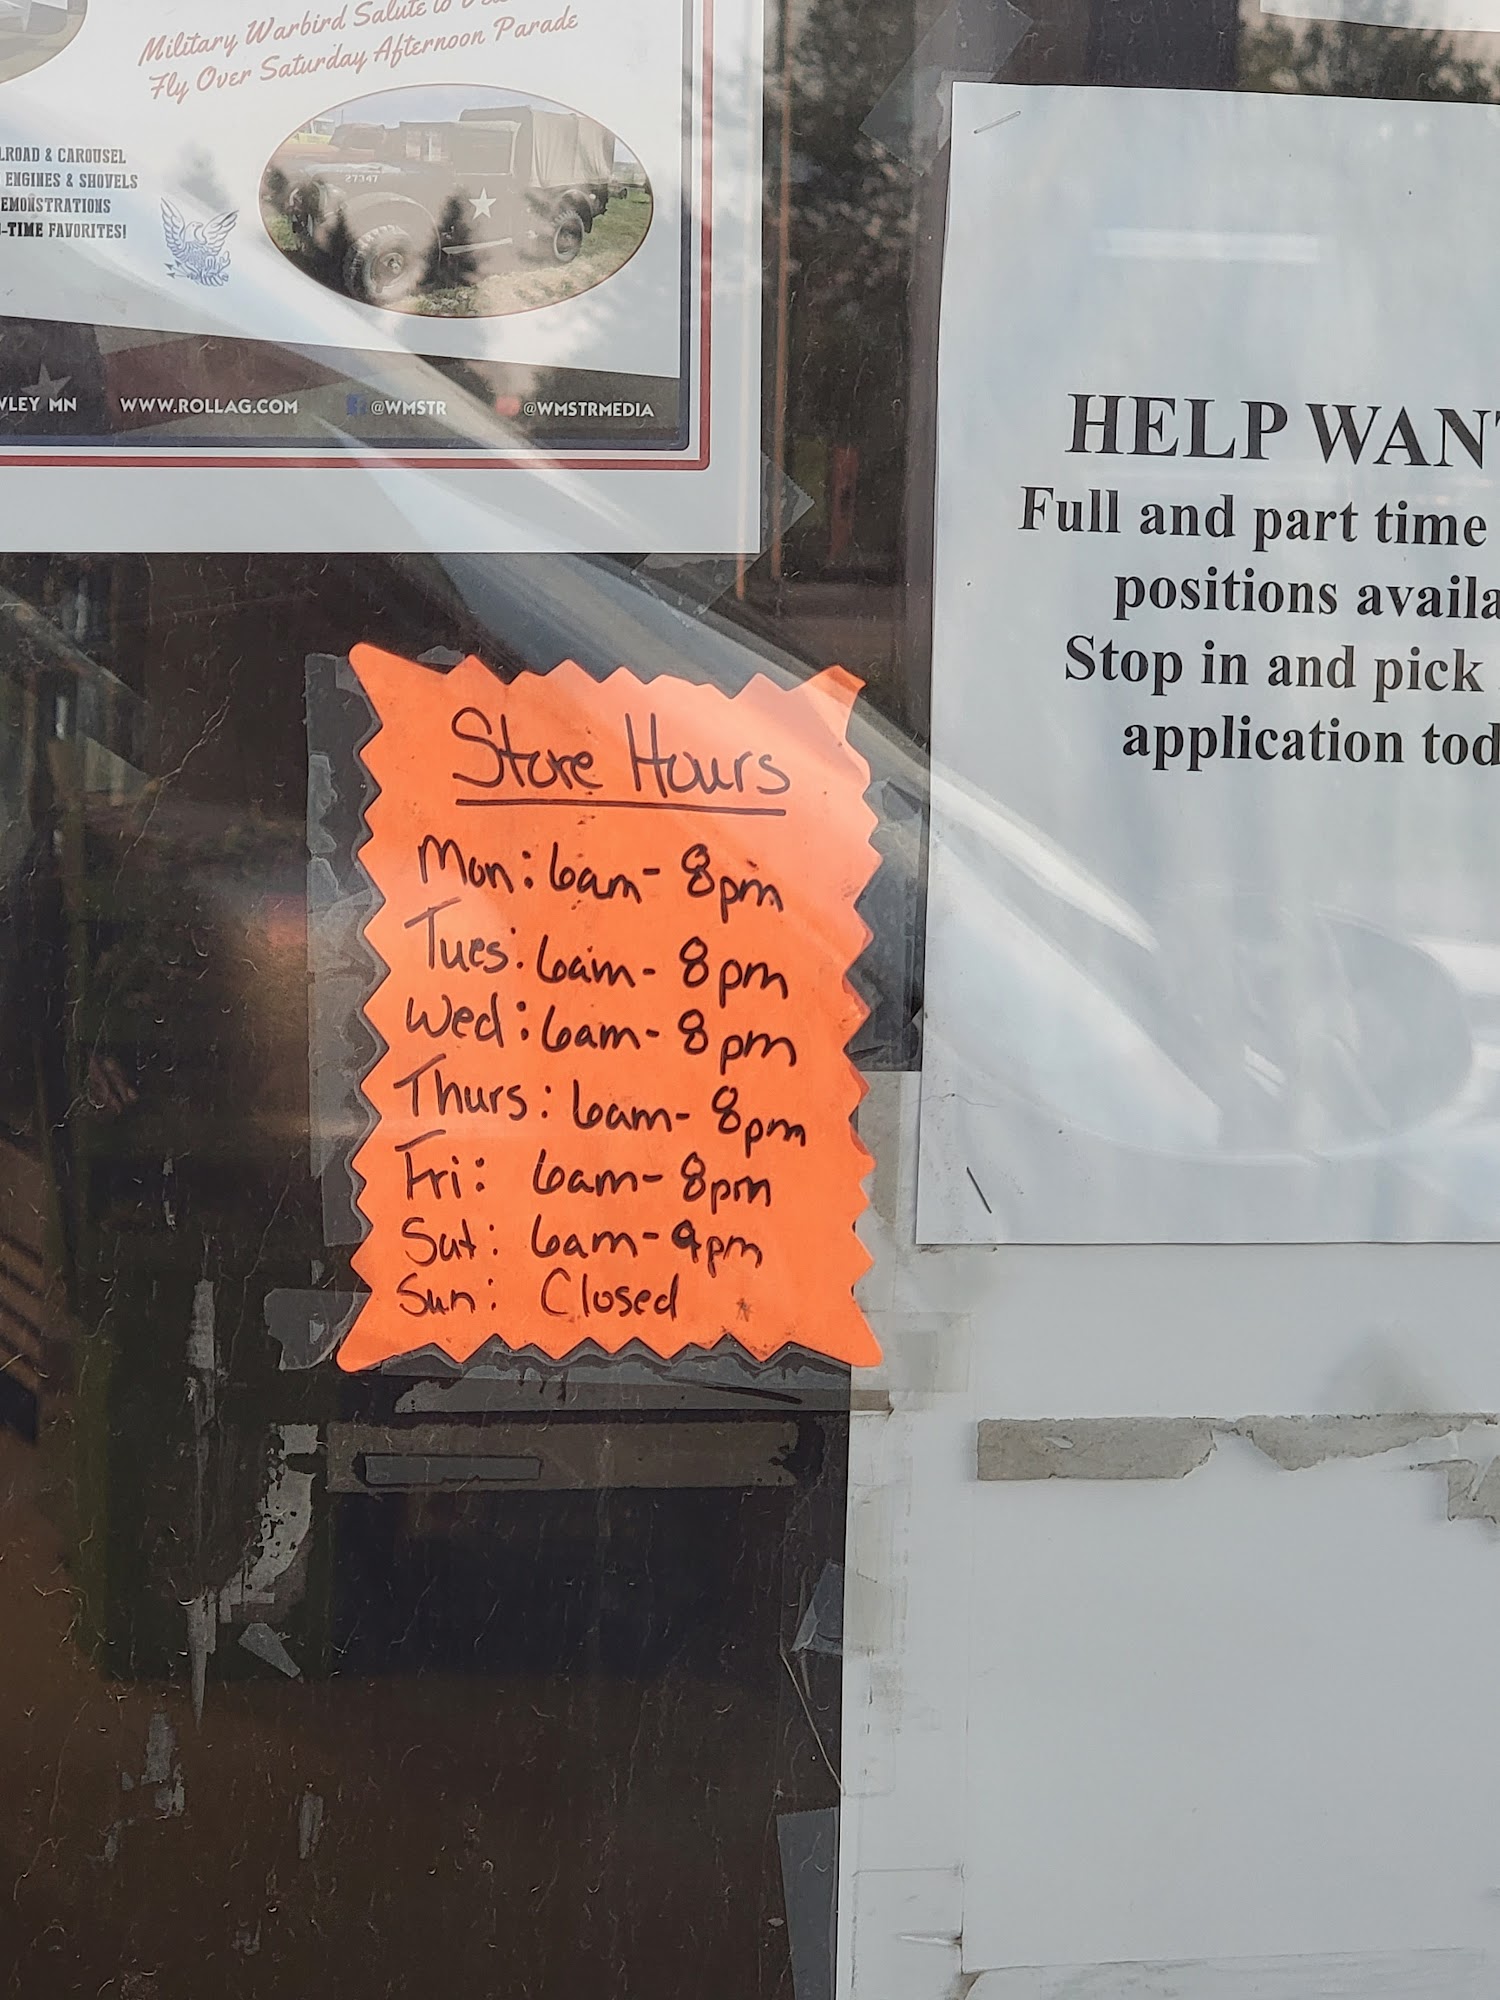 Military Warbird Salute to
Fly Over Saturday Afternoon Parade
LROAD & CAROUSEL
ENGINES & SHOVELS
EMONSTRATIONS
-TIME FAVORITES!
27347
WLEY MN WWW.ROLLAG.COM @WMSTR @WMSTRMEDIA
HELP WANT
Full and part time
positions availa
Stop in and pick
application tod
Store Hours
Mon: 6am- 8pm
Tues: 6am- 8pm
Wed: 6am- 8pm
Thurs: 6am- 8pm
Fri: 6am- 8pm
Sat: 6am- pm
Sun: Closed